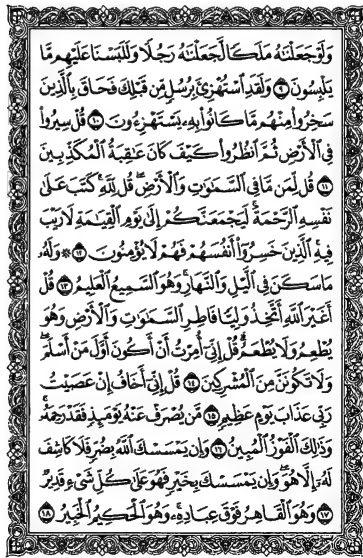 وَلَوْ جَعَلْنَٰهُ مَلَكًا لَّجَعَلْنَٰهُ رَجُلًا وَلَلَبَسْنَا عَلَيْهِم مَّا
يَلْبِسُونَ ٩ وَلَقَدِ ٱسْتُهْزِئَ بِرُسُلٍ مِّن قَبْلِكَ فَحَاقَ بِٱلَّذِينَ
سَخِرُوا۟ مِنْهُم مَّا كَانُوا۟ بِهِۦ يَسْتَهْزِءُونَ ١٠ قُلْ سِيرُوا۟
فِى ٱلْأَرْضِ ثُمَّ ٱنظُرُوا۟ كَيْفَ كَانَ عَٰقِبَةُ ٱلْمُكَذِّبِينَ
١١ قُل لِّمَن مَّا فِى ٱلسَّمَٰوَٰتِ وَٱلْأَرْضِ ۖ قُل لِّلَّهِ ۚ كَتَبَ عَلَىٰ
نَفْسِهِ ٱلرَّحْمَةَ ۚ لَيَجْمَعَنَّكُمْ إِلَىٰ يَوْمِ ٱلْقِيَٰمَةِ لَا رَيْبَ
فِيهِ ۚ ٱلَّذِينَ خَسِرُوٓا۟ أَنفُسَهُمْ فَهُمْ لَا يُؤْمِنُونَ ١٢ ۞ وَلَهُۥ
مَا سَكَنَ فِى ٱلَّيْلِ وَٱلنَّهَارِ ۚ وَهُوَ ٱلسَّمِيعُ ٱلْعَلِيمُ ١٣ قُلْ
أَغَيْرَ ٱللَّهِ أَتَّخِذُ وَلِيًّا فَاطِرِ ٱلسَّمَٰوَٰتِ وَٱلْأَرْضِ وَهُوَ
يُطْعِمُ وَلَا يُطْعَمُ ۗ قُلْ إِنِّىٓ أُمِرْتُ أَنْ أَكُونَ أَوَّلَ مَنْ أَسْلَمَ ۖ
وَلَا تَكُونَنَّ مِنَ ٱلْمُشْرِكِينَ ١٤ قُلْ إِنِّىٓ أَخَافُ إِنْ عَصَيْتُ
رَبِّى عَذَابَ يَوْمٍ عَظِيمٍ ١٥ مَّن يُصْرَفْ عَنْهُ يَوْمَئِذٍ فَقَدْ رَحِمَهُۥ ۚ
وَذَٰلِكَ ٱلْفَوْزُ ٱلْمُبِينُ ١٦ وَإِن يَمْسَسْكَ ٱللَّهُ بِضُرٍّ فَلَا كَاشِفَ
لَهُۥٓ إِلَّا هُوَ ۖ وَإِن يَمْسَسْكَ بِخَيْرٍ فَهُوَ عَلَىٰ كُلِّ شَىْءٍ قَدِيرٌ
١٧ وَهُوَ ٱلْقَاهِرُ فَوْقَ عِبَادِهِۦ ۚ وَهُوَ ٱلْحَكِيمُ ٱلْخَبِيرُ ١٨